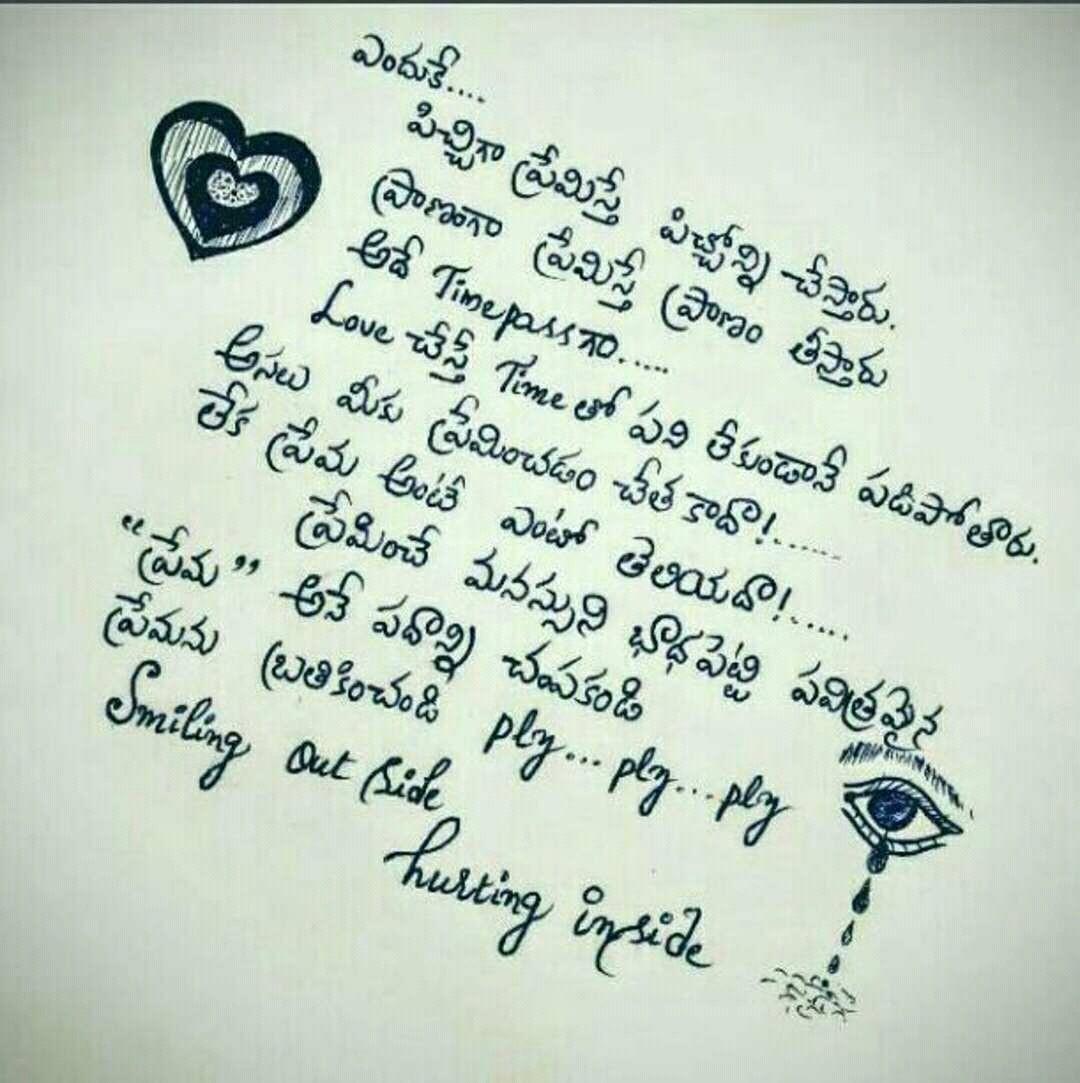 ఎందుకే....
పిచ్చిగా ప్రేమిస్తే పిచ్చోన్ని చేస్తారు.
ప్రాణంగా ప్రేమిస్తే ప్రాణం తీస్తారు
అదే Timepassగా.....
Love చేస్తే Time తో పని లేకుండానే పడిపోతారు.
అసలు మీకు ప్రేమించడం చేత కాదా!......
లేక ప్రేమ అంటే ఎంటో తెలియదా!.....
ప్రేమించే మనస్సుని భాధపెట్టి పవిత్రమైన
"ప్రేమ" అనే పదాన్ని చంపకండి
ప్రేమను బ్రతికించండి plz... plz... plz
Smiling out side
hurting inside